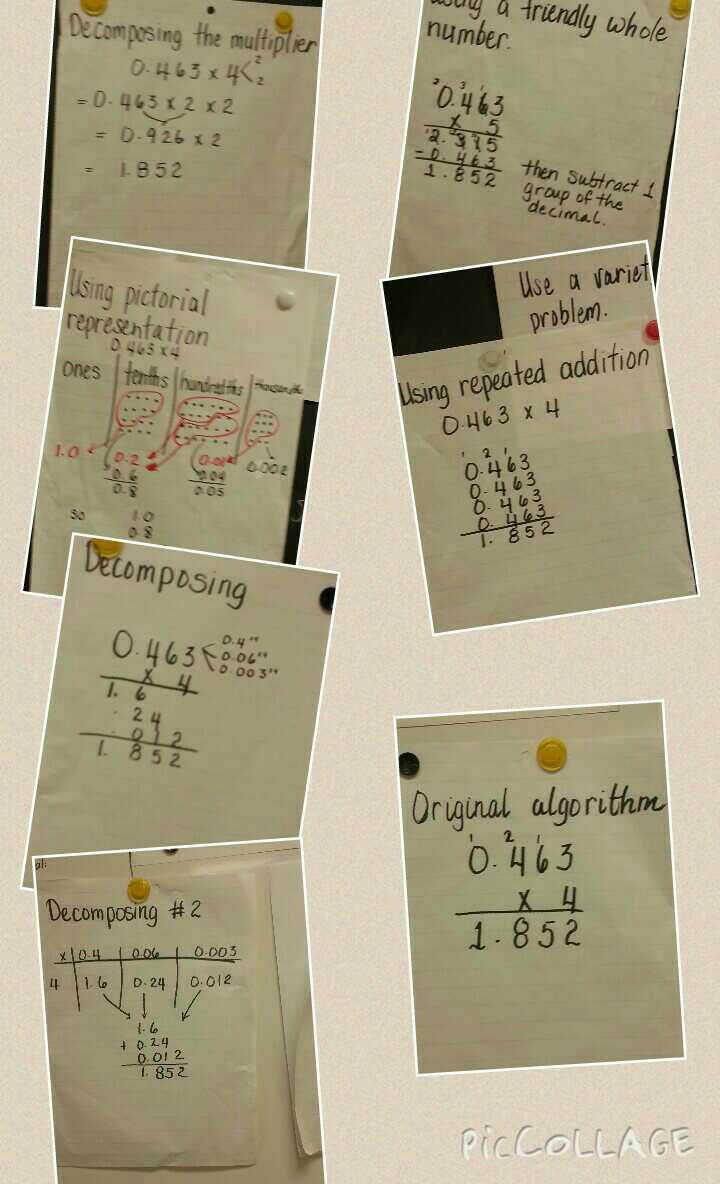 Decomposing the multiplier
0.463 x 4 < 2
2
= 0.463 x 2 x 2
= 0.926 x 2
= 1.852
a friendly whole
number.
2 3 1
0.463
x 5
2.315
- 0.463
1.852
then subtract 1
group of the
decimal.
Using pictorial
representation
0.463 x 4
ones tenths hundredths thousandths
1.0 0.2 0.01 0.002
0.6 0.04
0.8 0.05
so 1.0
0.8
Use a
problem.
Using repeated addition
0.463 x 4
1 2 1
0.463
0.463
0.463
0.463
1.852
Decomposing
0.463 < 0.4
0.06
0.003
x 4
1.6
.24
.012
1.852
Original algorithm
1 2 1
0.463
x 4
1.852
Decomposing #2
x 0.4 0.06 0.003
4 1.6 0.24 0.012
1.6
+ 0.24
0.012
1.852
PicCOLLAGE